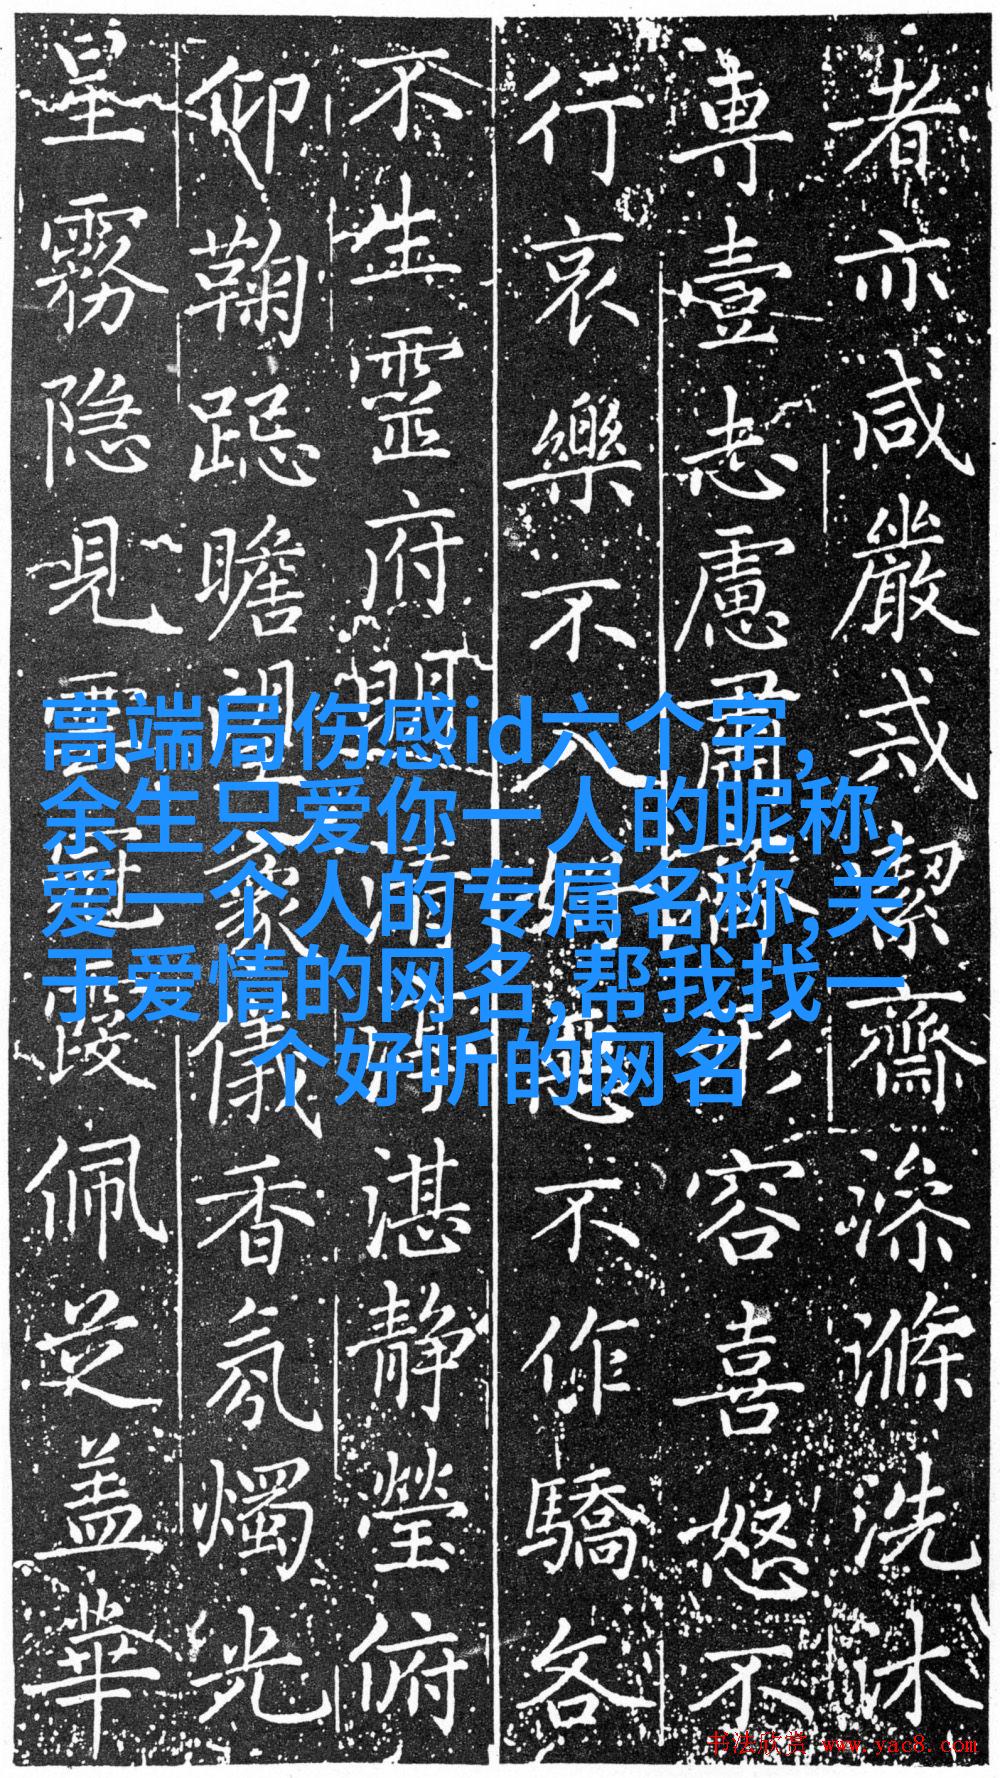 者亦咸嚴戒絜齋滲滌洗沐
専壹志慮肅形容喜怒不
行哀樂不入不作驕各
不生靈府湛静瑩俯
仰鞠跽瞻望象儀香氛燭光
星霧隐見雲冠霞佩芝盖華
高端局伤感id六个字,
余生只爱你一人的昵称,
爱一个人的专属名称,关
于爱情的网名,帮我找一
个好听的网名
书法欣赏 www.yac8.com